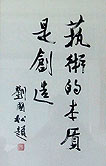 藝術的本質
是創造
劉國松題